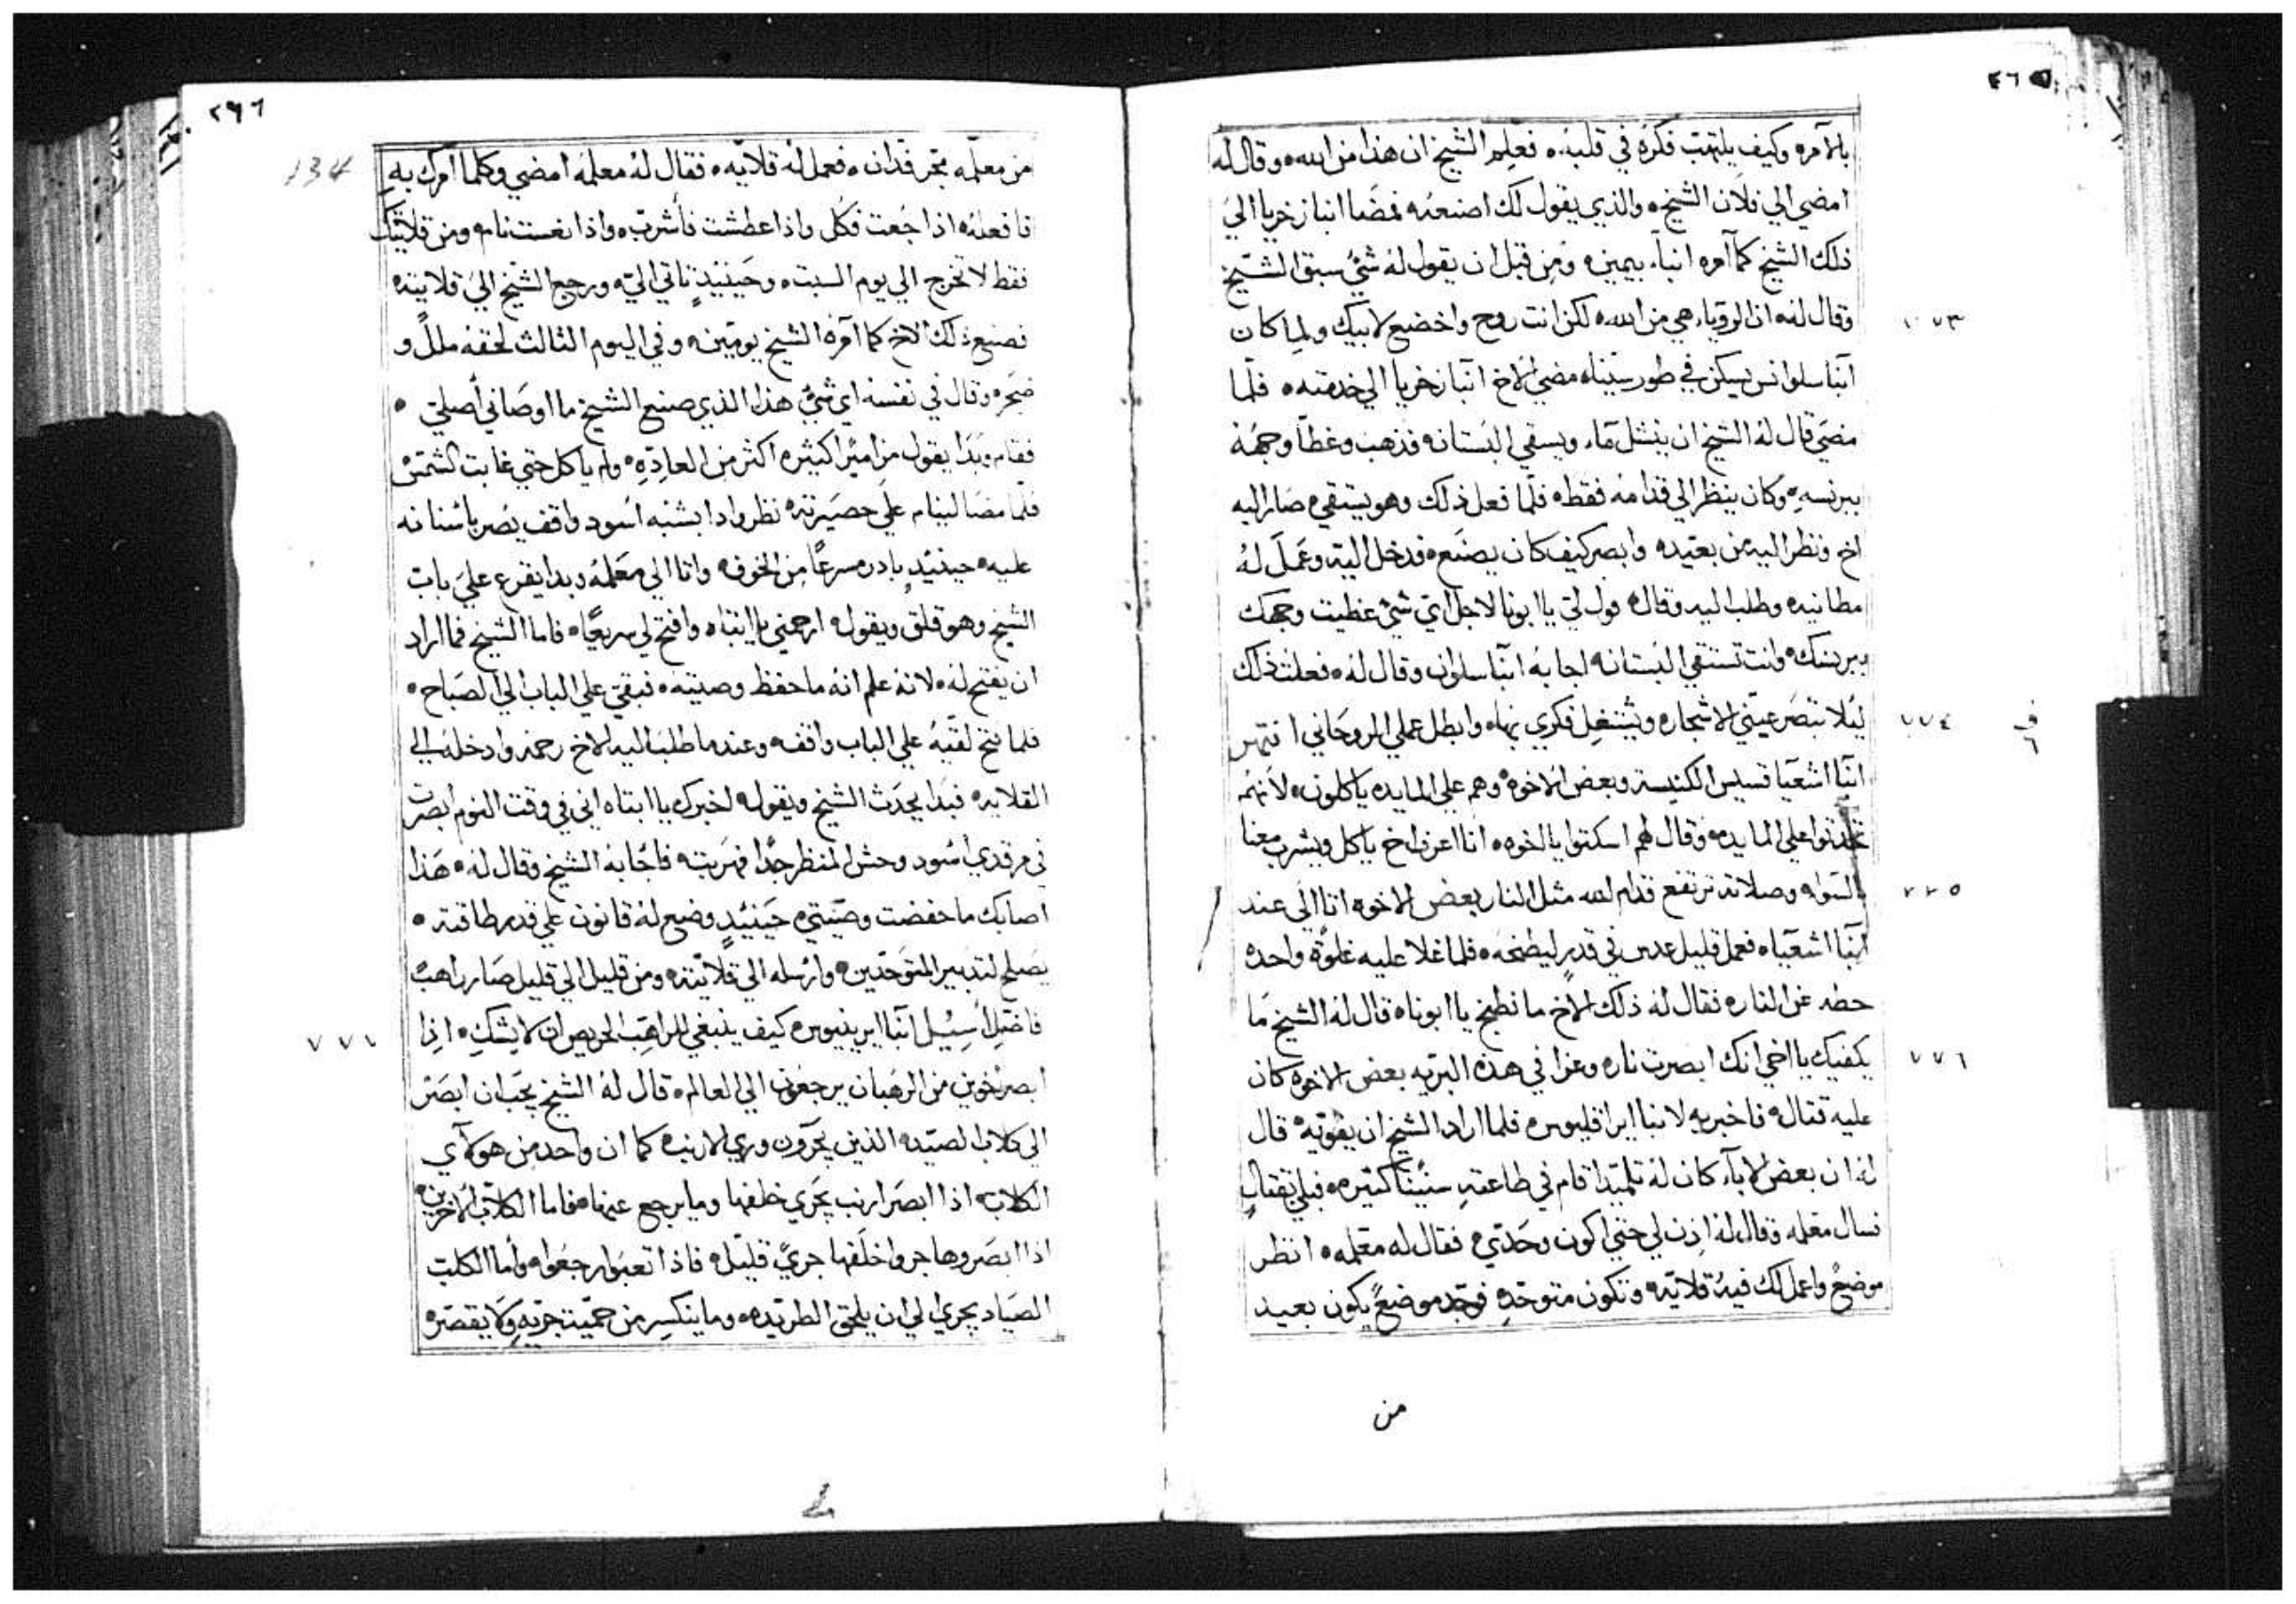 ٢٦٥
بالامره وكيف يلتهب فكره في قلبه فعلم الشيخ ان هذا من الله وقال له
امضي الي فلان الشيخ والذي يقول لك اصنعه فمضا انبا زخريا الي
ذلك الشيخ كما آمره انبا بيمين ومن قبل ان يقول له شي سبق الشيخ
وقال له ان الروياء هي من الله لكن انت روح واخضع لابيك ولما كان
٧٧٣
انبا سلوانس يسكن في طور سيناه مضي الاخ انبا زخريا الي خدمته فلما
مضي قال له الشيخ ان ينشل ماء ويسقي البستان فذهب وغطا وجهه
ببرنسه وكان ينظر الي قدامه فقط فلما فعل ذلك وهو يستقي صار اليه
اخ ونظر اليه من بعيد وابصر كيف كان يصنع فدخل اليه وعمل له
مطانيه وطلب اليه وقال قول لي يا ابونا لاجل اي شي غطيت وجهك
ببرنسك وانت تستقي البستان اجابه انبا سلوان وقال له فعلت ذلك
ليلا تبصر عيني الاشجار ويشتغل فكري بها وابطل عملي الروحاني انتهر
٧٧٤
ف
٦
انبا اشعيا قسيس الكنيسة وبعض الاخوه وهم علي المايده ياكلون لانهم
تحدثوا علي المايده وقال لهم اسكتوا يا اخوه انا اعرف اخ ياكل ويشرب معنا
بالسوا وصلاته ترتفع قدام الله مثل النار بعض الاخوه اتا الي عند
٧٧٥
انبا اشعياه فعمل قليل عدس في قدر ليطبخه فلما غلا عليه غلوة واحده
حطه عن النار فقال له ذلك الاخ ما نطبخ يا ابوناه قال له الشيخ ما
يكفيك يا اخي انك ابصرت نار وعزا في هذه البريه بعض الاخوه كان
٧٧٦
عليه قتال فاخبر به لانبا ايراقليوس فلما اراد الشيخ ان يقويه قال
له ان بعض الابآء كان له تلميذ اقام في طاعته سنينا كثيره فبلي بقتال
فسال معلمه وقال له اذن لي حتي اكون وحدي فقال له معلمه انظر
موضع واعمل لك فيه قلايه وتكون متوحد فوجد موضع يكون بعيد
من
٢٦٦
134
من معلمه بحجر فدان فعمل له قلايه فقال له معلمه امضي وكلما آمرك به
فافعله اذا جعت فكل واذا عطشت فأشرب واذا نعست نام ومن قلايتك
فقط لا تخرج الي يوم السبت وحينيذ تاتي الي ورجع الشيخ الي قلايته
فصنع ذلك الاخ كما آمره الشيخ يومين وفي اليوم الثالث لحقه ملل و
ضجر وقال في نفسه اي شي هذا الذي صنع الشيخ ما اوصاني اصلي
فقام وبدا يقول مزاميرا كثيره اكثر من العاده ولم ياكل حتي غابت الشمس
فلما مضا لينام علي حصيرته نظر واذا بشبه اسود واقف يصر باسنانه
عليه حينيذ بادر مسرعا من الخوف واتا الي معلمه وبدا يقرع علي باب
الشيخ وهو قلق ويقول ارحمني يا ابتاه وافتح لي سريعا فاما الشيخ فما اراد
ان يفتح له لانه علم انه ما حفظ وصيته فبقي علي الباب الي الصباح
فلما فتح لقيه علي الباب واقف وعندما طلب اليه الاخ رحمه وادخله الي
القلايه فبدا يحدث الشيخ ويقول اخبرك يا ابتاه اني في وقت النوم ابصرت
في مرقدي اسود وحش المنظر جدا فهربت فاجابه الشيخ وقال له هذا
اصابك ما حفضت وصيتي حينيذ وضع له قانون علي قدر طاقته
يصلح لتدبير المتوحدين وارسله الي قلايته ومن قليل الي قليل صار راهب
فاضل سييل انبا ايرينيوس كيف ينبغي للراهب الحريص ان لا يشك اذا
٧٧٧
ابصر اخوين من الرهبان يرجعون الي العالم قال له الشيخ يجب ان ابصر
الي كلاب الصيد الذين يجرون وري الارنب كما ان واحد من هولآي
الكلاب اذا ابصر ارنب يجري خلفها وما يرجع عنها فاما الكلاب الاخرين
اذا ابصروها جروا خلفها جري قليل فاذا تعبوا رجعوا وأما الكلب
الصياد يجري الي ان يلحق الطريده وما ينكسر من حميت جريه ولا يقصر